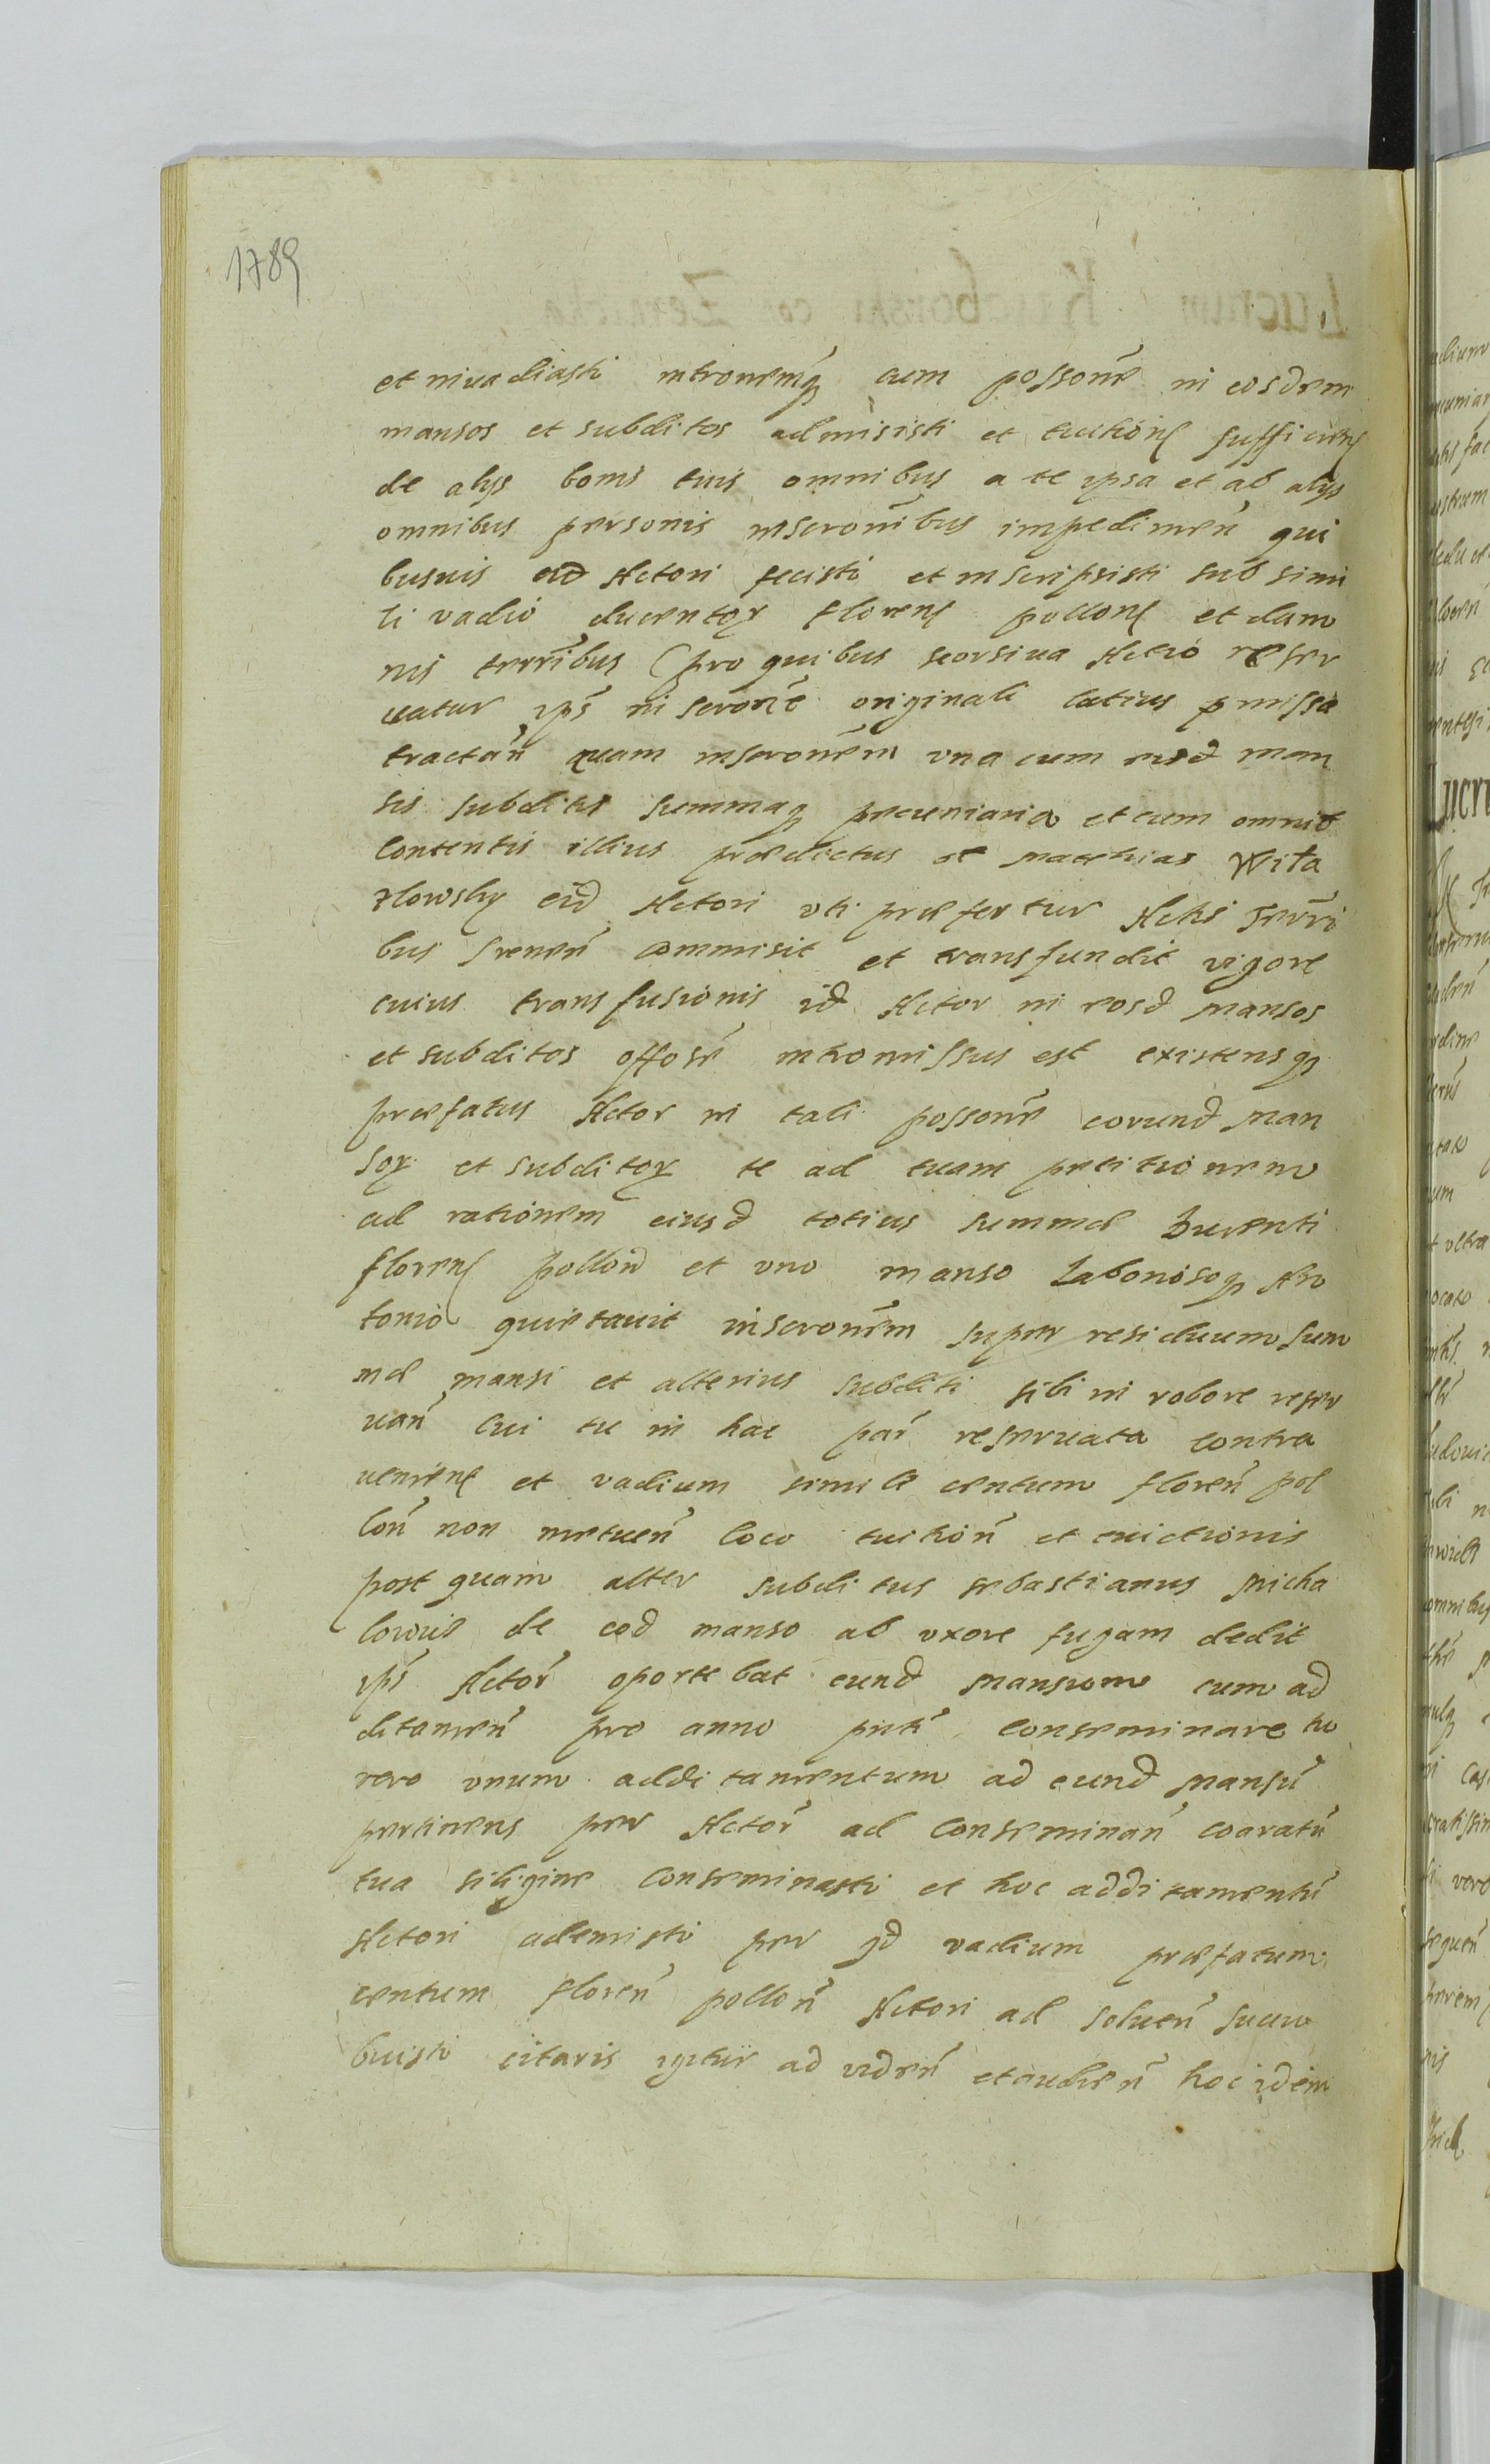 1789
et inuadiasti intronemq cum possone in eosdem
mansos et subditos admisisti et tuitionē sufficien
de alys bonis tuis omnibus a te ipsa et ab alys
omnibus personis inscronibus impedimen̄ qui
busuis eid Actori fecisti et inscripsisti sub simi
li vadio ducentor floren pollon et dam
nis terrībus (pro quibus seorsiua Actio reser
uatur ips inscrone originali latius pmissa
tractan̄ quam inscronem vna cum eisd man
sis subditis summaq pecuniaria et cum omnib
contentis illius prædictus ol Matthias Wita
zlowsky eid Actori vti præfertur Actis Terri
bus Srenen̄ commisit et transfundit vigore
cuius transfusionis id Actor in eosd mansos
et subditos offose intromissus est existensq
præfatus Actor in tali possone eorund man
sor et subditor te ad tuam petitionem
ad rationem eiusd totius summæ Ducenti
floren pollon et vno manso Laboriosoq An
tonio quietauit inscronem super residuum sum
mæ mansi et alterius subditi sibi in robore reser
uan̄ Cui tu in hac par̄ reseruata contra
uenien et vadium simile centum floren̄ pol
lon̄ non metuen̄ loco tuition̄ et euictionis
post quam alter subditus sebastianus Micha
lowic de eod manso ab vxore fugam dedit
ips Actor̄ oportebat eund mansum cum ad
ditamen̄ pro anno pnti conseminare tu
vero vnum additamentum ad eund mansū
pertinens per Actor̄ ad conseminan̄ coaratū
tua siligine conseminasti et hoc additamentū
Actori ademisti per qd vadium præfatum
centum floren̄ pollon̄ Actori ad soluen̄ succu
buisti citaris igitur ad viden̄ et audien̄ hoc idem